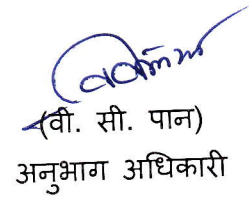 (वी. सी. पान)
अनुभाग अधिकारी